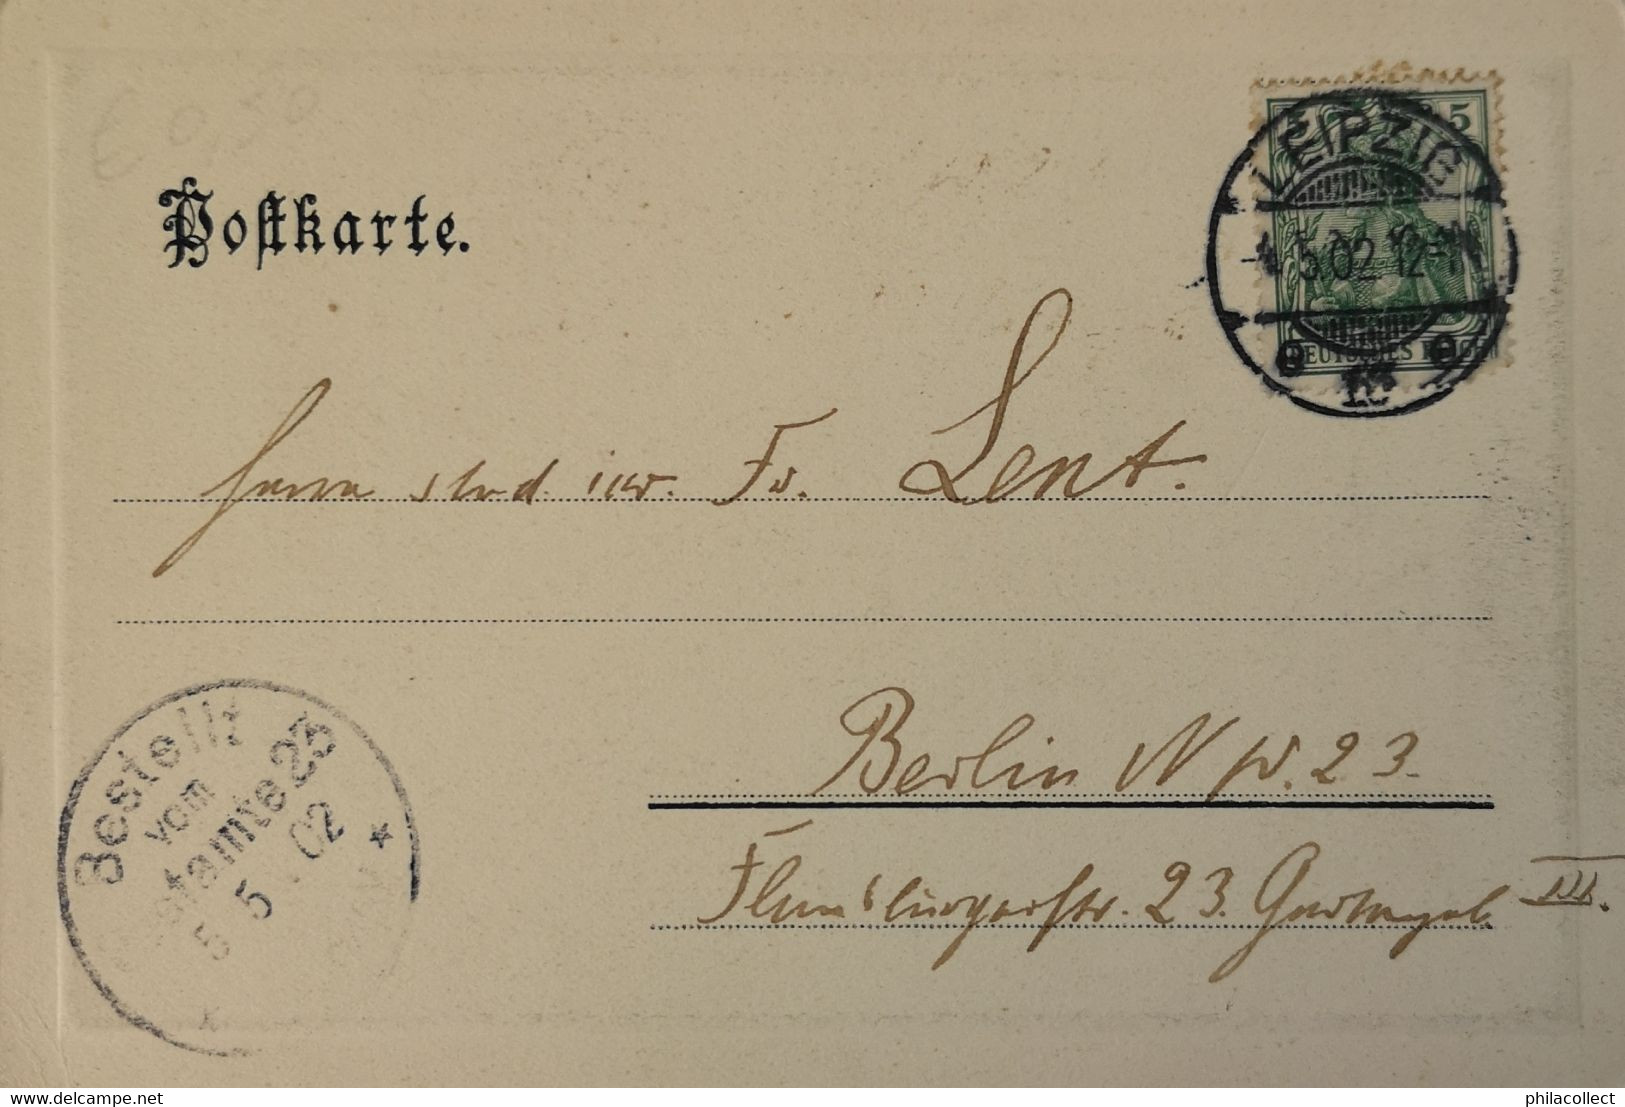 Postkarte.
5 5
LEIPZIG
4.5.02.12-1N
DEUTSCHES REICH
Herrn stud. Fr. Lent.
Berlin N W. 23.
Flensburgerstr. 23. III.
Bestellt
vom
Postamte 23
5 5 02
philacollect